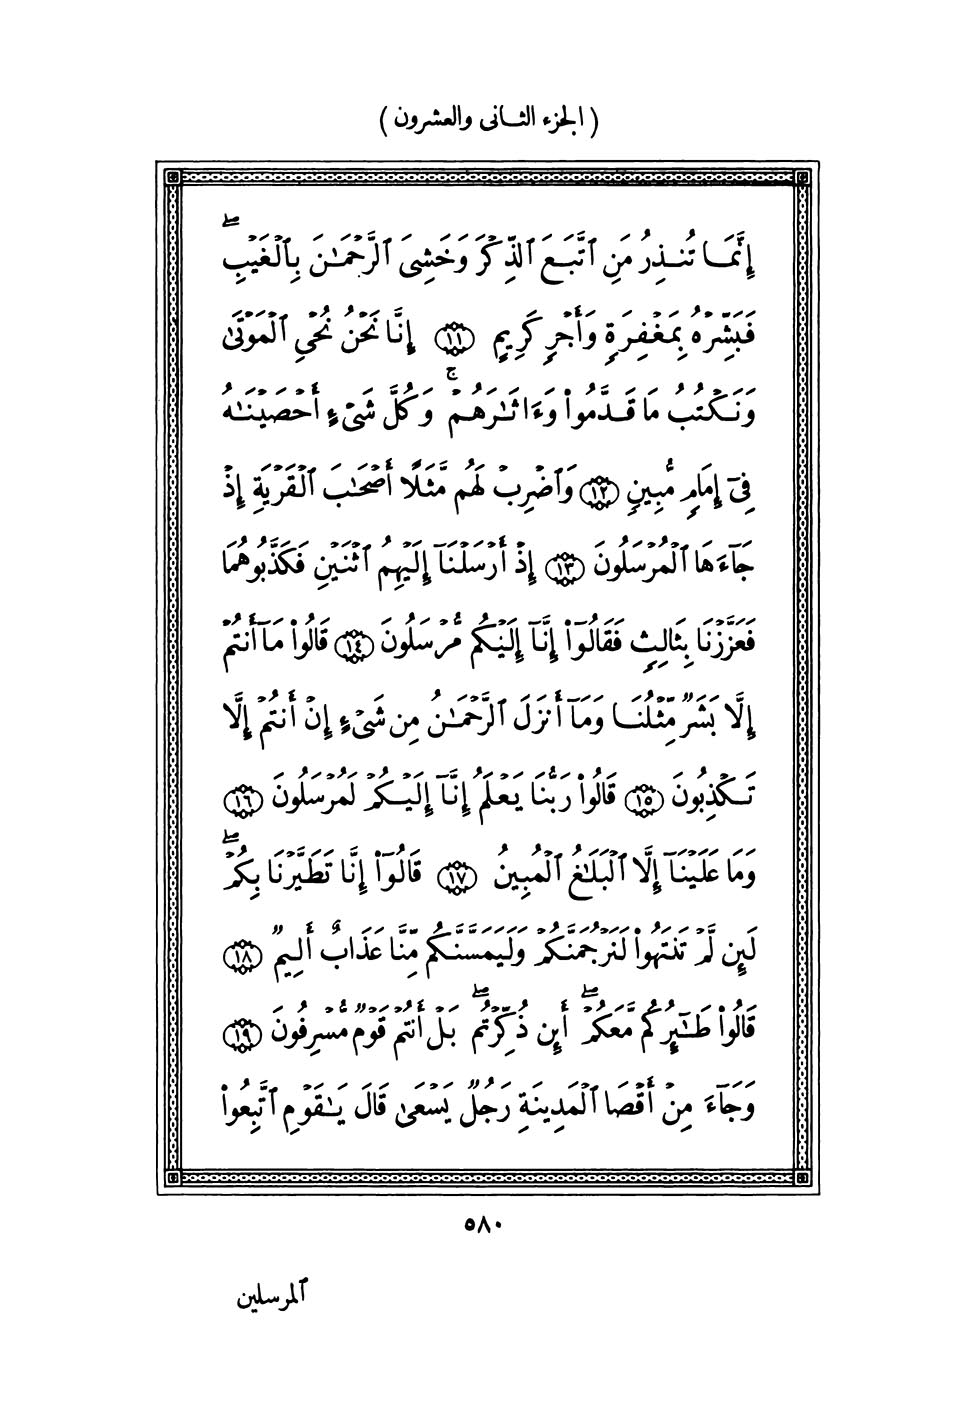 (الجزء الثانى والعشرون)
إِنَّمَا تُنذِرُ مَنِ ٱتَّبَعَ ٱلذِّكْرَ وَخَشِىَ ٱلرَّحْمَـٰنَ بِٱلْغَيْبِ ۖ
فَبَشِّرْهُ بِمَغْفِرَةٍ وَأَجْرٍ كَرِيمٍ ١١ إِنَّا نَحْنُ نُحْىِ ٱلْمَوْتَىٰ
وَنَكْتُبُ مَا قَدَّمُوا۟ وَءَاثَـٰرَهُمْ ۚ وَكُلَّ شَىْءٍ أَحْصَيْنَـٰهُ
فِىٓ إِمَامٍ مُّبِينٍ ١٢ وَٱضْرِبْ لَهُم مَّثَلًا أَصْحَـٰبَ ٱلْقَرْيَةِ إِذْ
جَآءَهَا ٱلْمُرْسَلُونَ ١٣ إِذْ أَرْسَلْنَآ إِلَيْهِمُ ٱثْنَيْنِ فَكَذَّبُوهُمَا
فَعَزَّزْنَا بِثَالِثٍ فَقَالُوٓا۟ إِنَّآ إِلَيْكُم مُّرْسَلُونَ ١٤ قَالُوا۟ مَآ أَنتُمْ
إِلَّا بَشَرٌ مِّثْلُنَا وَمَآ أَنزَلَ ٱلرَّحْمَـٰنُ مِن شَىْءٍ إِنْ أَنتُمْ إِلَّا
تَكْذِبُونَ ١٥ قَالُوا۟ رَبُّنَا يَعْلَمُ إِنَّآ إِلَيْكُمْ لَمُرْسَلُونَ ١٦
وَمَا عَلَيْنَآ إِلَّا ٱلْبَلَـٰغُ ٱلْمُبِينُ ١٧ قَالُوٓا۟ إِنَّا تَطَيَّرْنَا بِكُمْ ۖ
لَئِن لَّمْ تَنتَهُوا۟ لَنَرْجُمَنَّكُمْ وَلَيَمَسَّنَّكُم مِّنَّا عَذَابٌ أَلِيمٌ ١٨
قَالُوا۟ طَـٰٓئِرُكُم مَّعَكُمْ ۖ أَئِن ذُكِّرْتُم ۖ بَلْ أَنتُمْ قَوْمٌ مُّسْرِفُونَ ١٩
وَجَآءَ مِنْ أَقْصَا ٱلْمَدِينَةِ رَجُلٌ يَسْعَىٰ قَالَ يَـٰقَوْمِ ٱتَّبِعُوا۟
٥٨٠
ٱلمرسلين